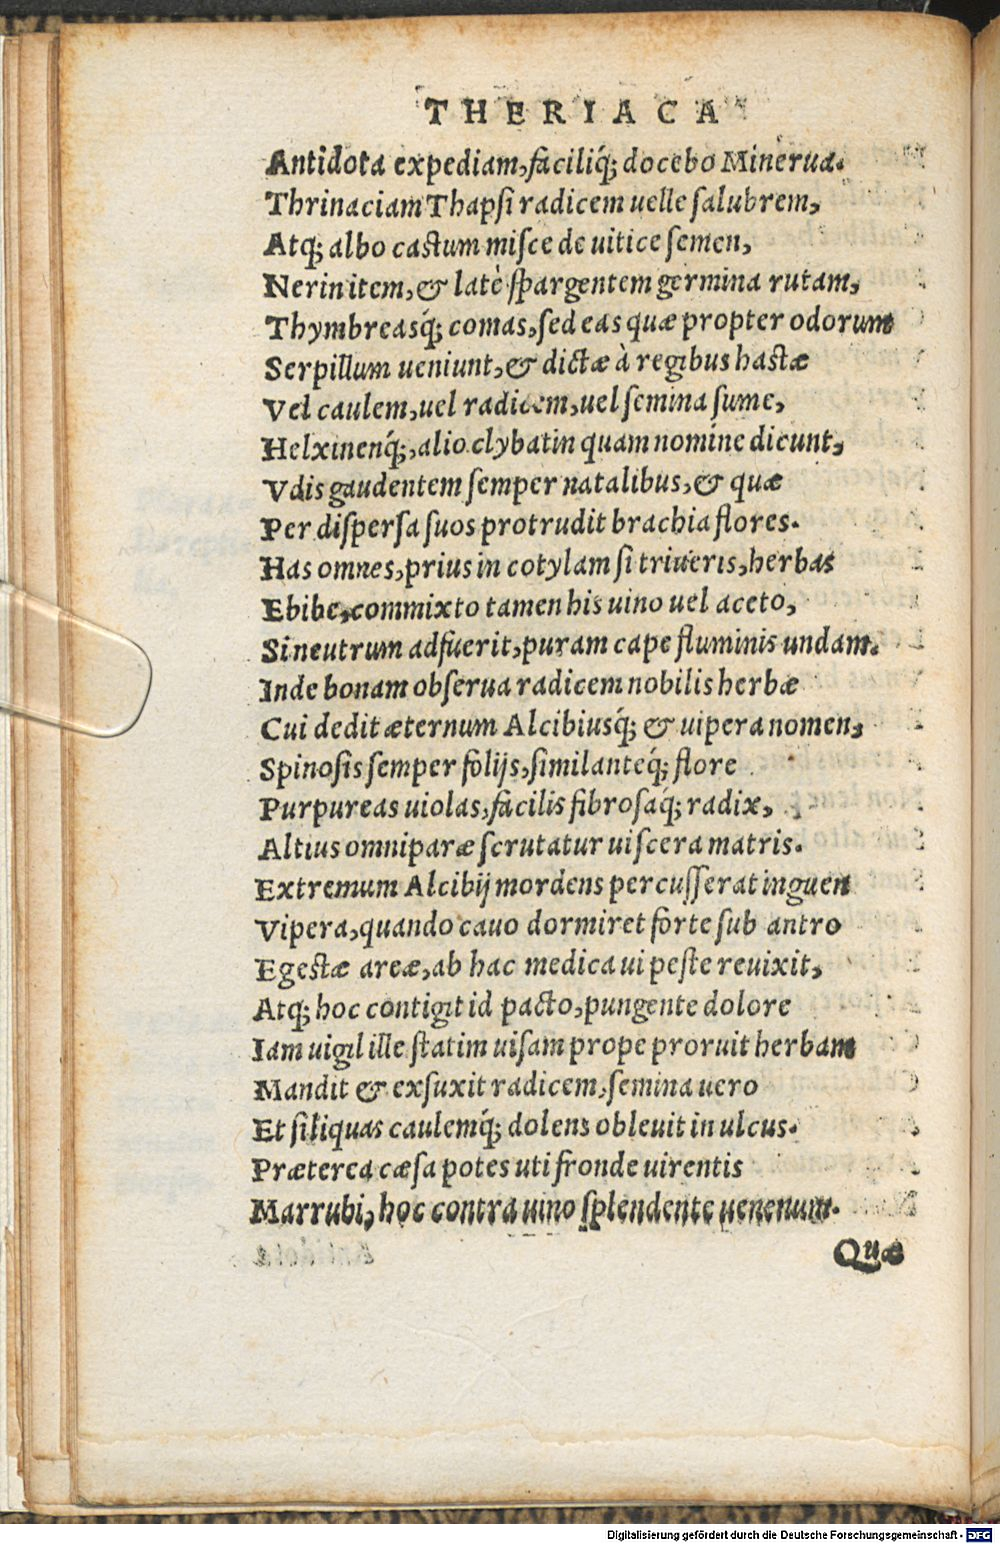 THERIACA
Antidota expediam, faciliq́; docebo Minerua.
Thrinaciam Thapsi radicem uelle salubrem,
Atq; albo castum misce de uitice semen,
Nerin item, & latè spargentem germina rutam,
Thymbreasq́; comas, sed eas quæ propter odorum
Serpillum ueniunt, & dictæ à regibus hastæ
Vel caulem, uel radicem, uel semina sume,
Helxinenq́;, alio clybatin quam nomine dicunt,
Vdis gaudentem semper natalibus, & quæ
Per dispersa suos protrudit brachia flores.
Has omnes, prius in cotylam si triueris, herbas
Ebibe, commixto tamen his uino uel aceto,
Si neutrum adfuerit, puram cape fluminis undam.
Inde bonam obserua radicem nobilis herbæ
Cui dedit æternum Alcibiusq́; & uipera nomen,
Spinosis semper folijs, similanteq́; flore
Purpureas uiolas, facilis fibrosaq́; radix,
Altius omniparæ scrutatur uiscera matris.
Extremum Alcibij mordens percusserat inguen
Vipera, quando cauo dormiret forte sub antro
Egestæ areæ, ab hac medica ui peste reuixit,
Atq; hoc contigit id pacto, pungente dolore
Iam uigil ille statim uisam prope proruit herbam
Mandit & exsuxit radicem, semina uero
Et siliquas caulemq́; dolens obleuit in ulcus.
Præterea cæsa potes uti fronde uirentis
Marrubi, hoc contra uino splendente uenenum.
Quæ
Digitalisierung gefördert durch die Deutsche Forschungsgemeinschaft - DFG